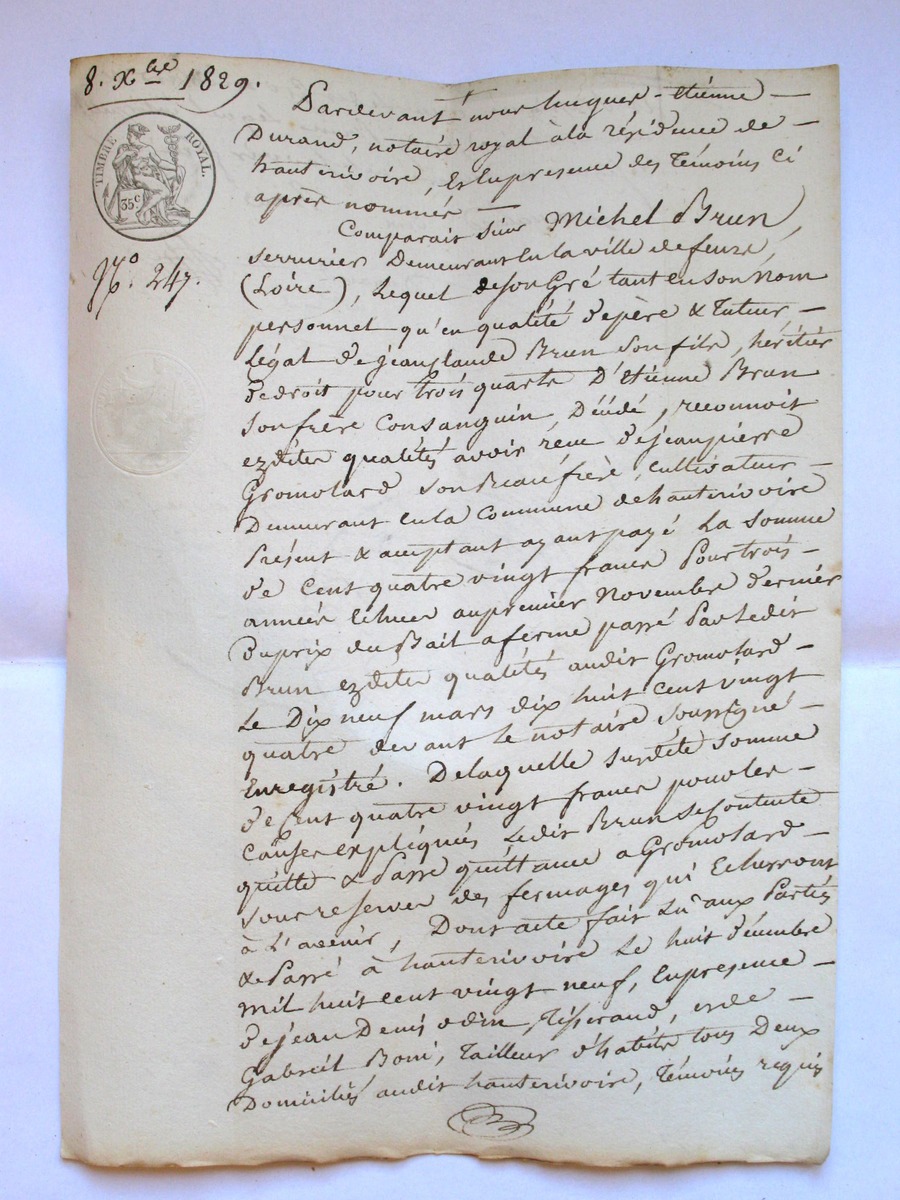 8. Xbre 1829.
TIMBRE ROYAL.
35c
No. 247.
Pardevant nous hugues-étiénne
Durand, notaire royal à la résidence de
hauterivoire, Et En presence des Témoins Ci
après nommés
Comparait Sieur Michel Brun,
serrurier Demeurant En la ville de feurs,
(Loire), Lequel de son Gré tant en Son Nom
personnel qu'en qualité de père & Tuteur
Légal de jean Claude Brun Son fils, héritier
de droit pour trois quarts D'étienne Brun
Son frère Consanguin, Décédé, reconnoit
ezdites qualités avoir réçu de jean pierre
Gromolard Son Beaufrère, Cultivateur
Demeurant En la Commune de hauterivoire
Présent & acceptant ayant payé La Somme
de Cent quatre vingt francs Pour trois
années Echues au premier Novembre dernier
Du prix du Bail a ferme passé Par Ledit
Brun ezdites qualités audit Gromolard
Le Dix neuf mars dix huit cent vingt
quatre devant le notaire Soussigné
Enregistré. De laquelle Susdite Somme
de Cent quatre vingt francs pour les
Causes expliquées Ledit Brun Se Contente
quitte & Passe quittance a Gromolard
sous reserves des fermages qui Echerront
à L'avenir, Dont acte fait Lu aux Parties
& Passé à hauterivoire Le huit décembre
Mil huit Cent vingt neuf, En presence
de jean Denis odin, Tisserand, et de
Gabriel Boni, Tailleur d'habits tous Deux
Domiciliés audit hauterivoire, Témoins requis